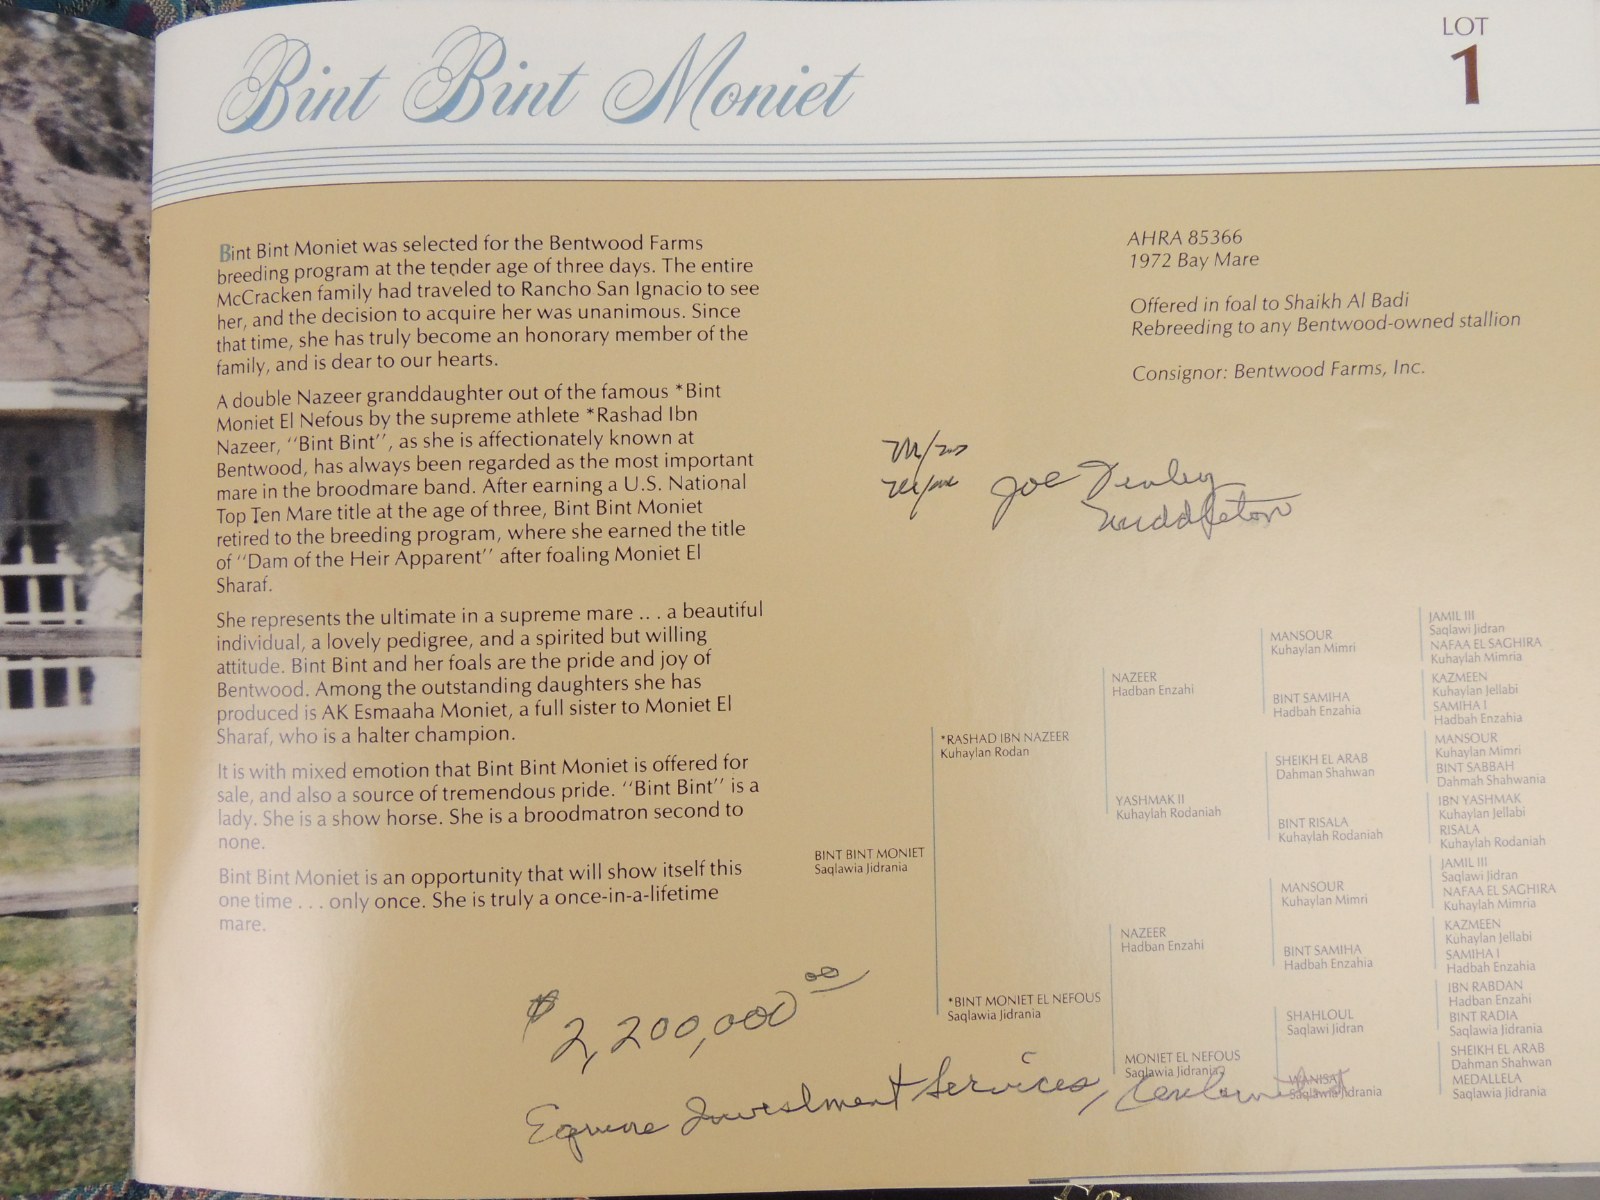 Bint Bint Moniet
LOT
1
Bint Bint Moniet was selected for the Bentwood Farms
breeding program at the tender age of three days. The entire
McCracken family had traveled to Rancho San Ignacio to see
her, and the decision to acquire her was unanimous. Since
that time, she has truly become an honorary member of the
family, and is dear to our hearts.
A double Nazeer granddaughter out of the famous *Bint
Moniet El Nefous by the supreme athlete *Rashad Ibn
Nazeer, ''Bint Bint'', as she is affectionately known at
Bentwood, has always been regarded as the most important
mare in the broodmare band. After earning a U.S. National
Top Ten Mare title at the age of three, Bint Bint Moniet
retired to the breeding program, where she earned the title
of ''Dam of the Heir Apparent'' after foaling Moniet El
Sharaf.
She represents the ultimate in a supreme mare . . . a beautiful
individual, a lovely pedigree, and a spirited but willing
attitude. Bint Bint and her foals are the pride and joy of
Bentwood. Among the outstanding daughters she has
produced is AK Esmaaha Moniet, a full sister to Moniet El
Sharaf, who is a halter champion.
It is with mixed emotion that Bint Bint Moniet is offered for
sale, and also a source of tremendous pride. ''Bint Bint'' is a
lady. She is a show horse. She is a broodmatron second to
none.
Bint Bint Moniet is an opportunity that will show itself this
one time . . . only once. She is truly a once-in-a-lifetime
mare.
AHRA 85366
1972 Bay Mare
Offered in foal to Shaikh Al Badi
Rebreeding to any Bentwood-owned stallion
Consignor: Bentwood Farms, Inc.
Joe
Middleton
BINT BINT MONIET
Saqlawia Jidrania
*RASHAD IBN NAZEER
Kuhaylan Rodan
*BINT MONIET EL NEFOUS
Saqlawia Jidrania
NAZEER
Hadban Enzahi
YASHMAK II
Kuhaylah Rodaniah
NAZEER
Hadban Enzahi
MONIET EL NEFOUS
Saqlawia Jidrania
MANSOUR
Kuhaylan Mimri
BINT SAMIHA
Hadbah Enzahia
SHEIKH EL ARAB
Dahman Shahwan
BINT RISALA
Kuhaylah Rodaniah
MANSOUR
Kuhaylan Mimri
BINT SAMIHA
Hadbah Enzahia
SHAHLOUL
Saqlawi Jidran
WANISA
Saqlawia Jidrania
JAMIL III
Saqlawi Jidran
NAFAA EL SAGHIRA
Kuhaylah Mimria
KAZMEEN
Kuhaylan Jellabi
SAMIHA I
Hadbah Enzahia
MANSOUR
Kuhaylan Mimri
BINT SABBAH
Dahmah Shahwania
IBN YASHMAK
Kuhaylan Jellabi
RISALA
Kuhaylah Rodaniah
JAMIL III
Saqlawi Jidran
NAFAA EL SAGHIRA
Kuhaylah Mimria
KAZMEEN
Kuhaylan Jellabi
SAMIHA I
Hadbah Enzahia
IBN RABDAN
Hadban Enzahi
BINT RADIA
Saqlawia Jidrania
SHEIKH EL ARAB
Dahman Shahwan
MEDALLELA
Saqlawia Jidrania
$ 2,200,000 00
Equine Investment Services,